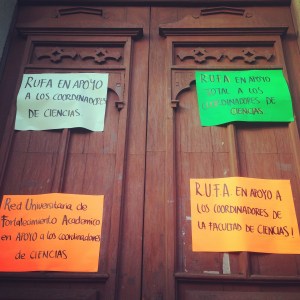 RUFA EN APOYO
A LOS COORDINADORES
DE CIENCIAS
RUFA EN APOYO
TOTAL A LOS
COORDINADORES DE
CIENCIAS
Red Universitaria de
Fortalecimiento Académico
en APOYO a los coordinadores
de CIENCIAS
RUFA EN APOYO A
LOS COORDINADORES DE
LA FACULTAD DE CIENCIAS!